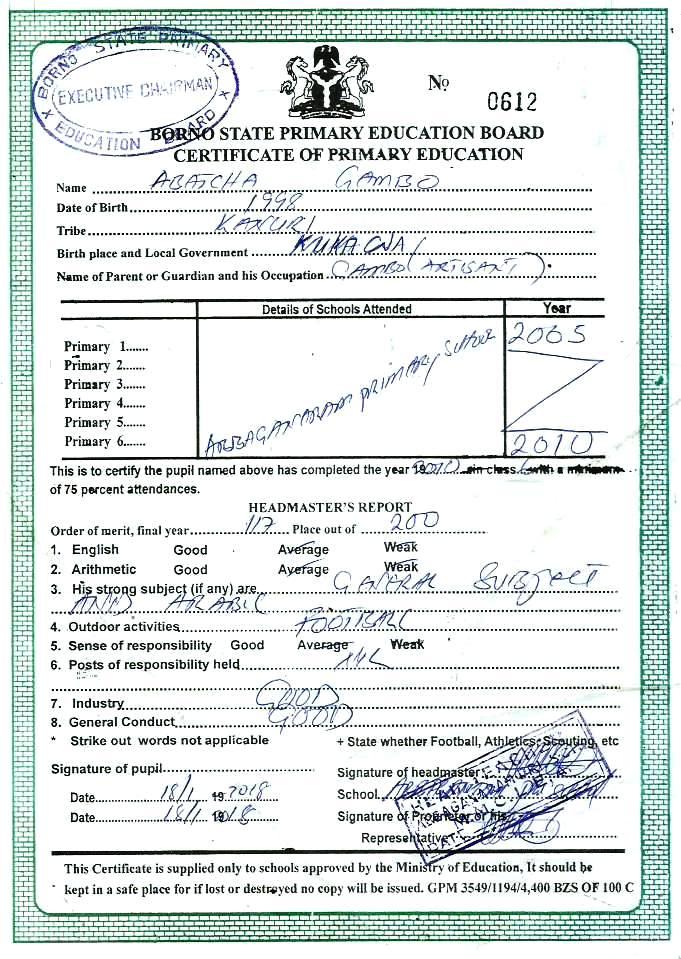 BORNO STATE PRIMARY
EXECUTIVE CHAIRMAN
EDUCATION BOARD
No 0612
BORNO STATE PRIMARY EDUCATION BOARD
CERTIFICATE OF PRIMARY EDUCATION
Name ABATCHA GAMBO
Date of Birth 1998
Tribe KANURI
Birth place and Local Government
Name of Parent or Guardian and his Occupation GAMBO (ARTISAN)
Details of Schools Attended Year
Primary 1....... 2005
Primary 2.......
Primary 3.......
Primary 4.......
Primary 5.......
Primary 6....... 2010
PRIMARY SCHOOL
This is to certify the pupil named above has completed the year 2010 in class 6 with a minimum
of 75 percent attendances.
HEADMASTER'S REPORT
Order of merit, final year 117 Place out of 200
1. English Good Average Weak
2. Arithmetic Good Average Weak
3. His strong subject (if any) are GENERAL SUBJECT
AND ARABIC
4. Outdoor activities FOOTBALL
5. Sense of responsibility Good Average Weak
6. Posts of responsibility held
7. Industry GOOD
8. General Conduct GOOD
* Strike out words not applicable + State whether Football, Athletics, Scouting, etc
Signature of pupil Signature of headmaster
Date 18/1 19 2018 School
Date 18/1 19 2018 Signature of Proprietor or his
Representative
This Certificate is supplied only to schools approved by the Ministry of Education, It should be
kept in a safe place for if lost or destroyed no copy will be issued. GPM 3549/1194/4,400 BZS OF 100 C